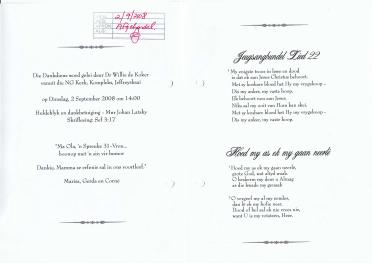 2/9/2008
Afgehandel
Die Dankdiens word gelei deur Dr Willie de Koker
vanuit die NG Kerk, Kompleks, Jeffreysbaai
op Dinsdag, 2 September 2008 om 14:00
Huldeblyk en dankbetuiging - Mnr Johan Latsky
Skriflesing: Sef 3:17
"Ma Ola, 'n Spreuke 31-Vrou...
hoomop met 'n sin vir humor
Dankie, Mamma se erfenis sal in ons voortleef."
Marise, Gerda en Corné
Jeugsangbundel Lied 22
My enigste troos in lewe en dood
is dat ek aan Jesus Christus behoort.
Met sy kosbare bloed het Hy my vrygekoop -
Dis my anker, my vaste hoop.
Ek behoort nou aan Jesus.
Niks sal my ooit van Hom kan skei.
Met sy kosbare bloed het Hy my vrygekoop -
Dis my anker, my vaste hoop.
Hoed my as ek my gaan neerlê
Hoed my as ek my gaan neerlê,
grote God, net altyd waak.
O beskerm my deur u Almag
as die bande my genaak
O vergeef my al my sondes,
dan lê ek my hoflie neer.
Dood of hel sal ek nie vrees nie,
want U is my rotssteen, Heer.